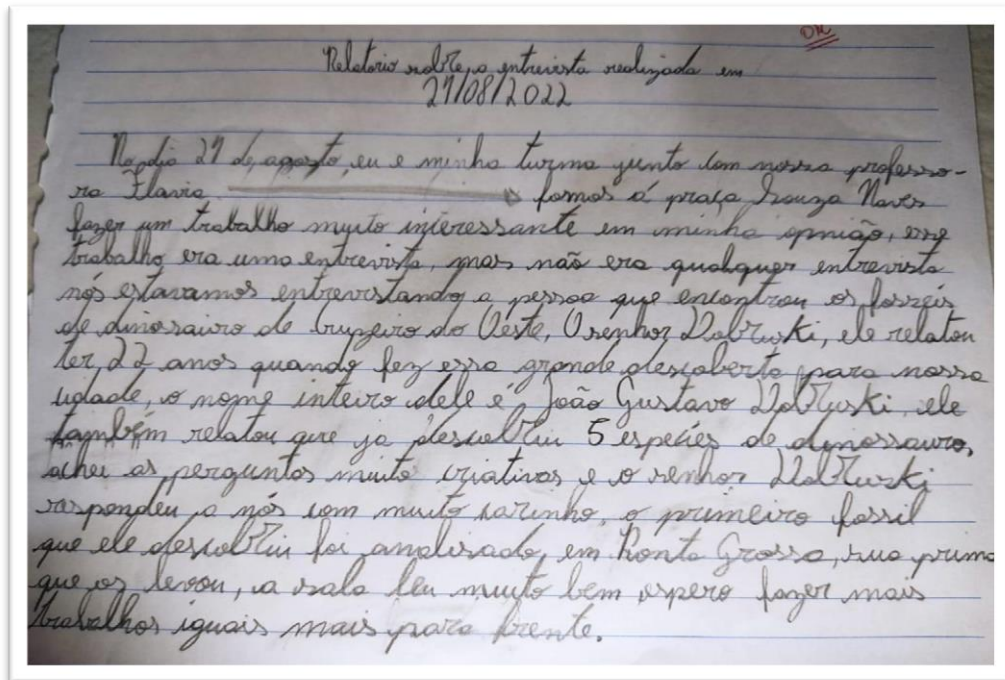 OK
Relatório sobre a entrevista realizada em
29/08/2022
No dia 29 de agosto, eu e minha turma junto com nossa professo-
ra Flavia fomos á praça Souza Naves
fazer um trabalho muyto interessante em minha opnião, esse
trabalho era uma entrevista, mas não era qualquer entrevista
nós estavamos entrevistando a pessoa que encontrou os fosseis
de dinosairo de Cruzeiro do Oeste, O senhor Dobruski, ele relatou
ter 22 anos quando fez essa grande descoberta para nossa
cidade, o nome inteiro dele é João Gustavo Dobruski, ele
também relatou que ja descobriu 5 espécies de dinossauro,
achei as perguntas muito criativas e o senhor Dobruski
respondeu a nós com muito carinho, o primeiro fossil
que ele descobriu foi analisado em Ponta Grossa, sua prima
que os levou, a sala leu muyto bem espero fazer mais
trabalhos iguais mais para frente.